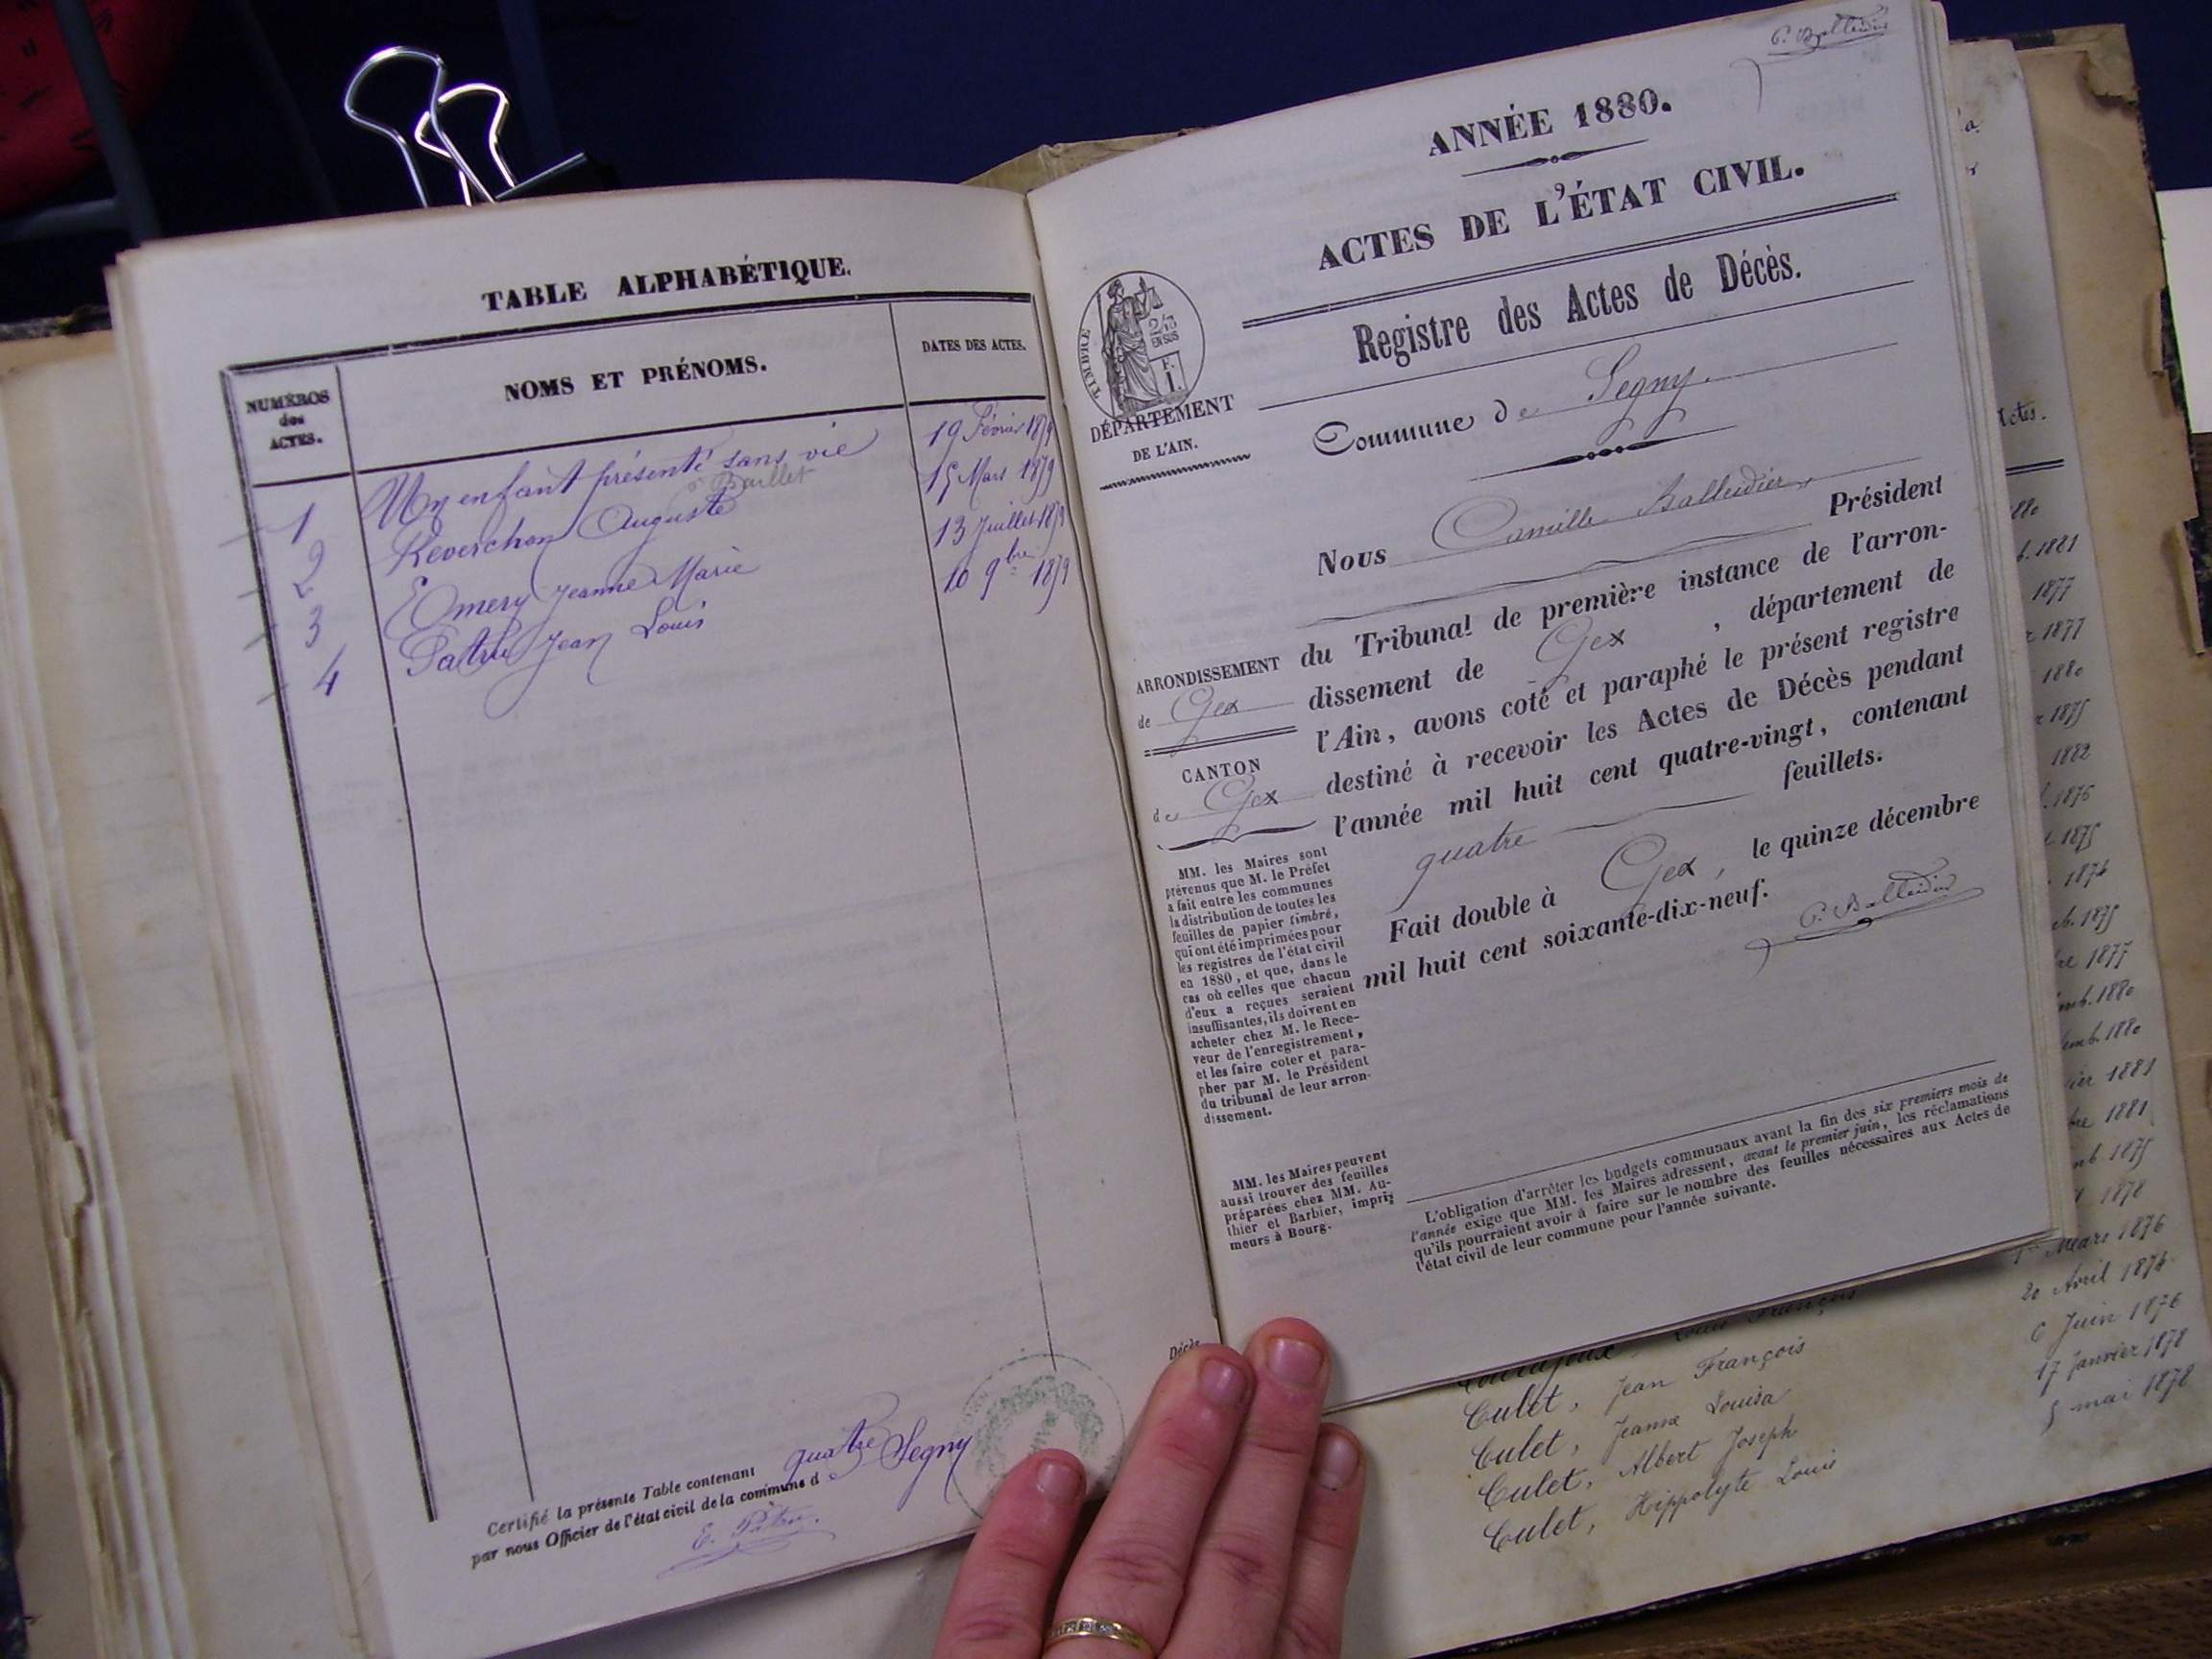 TABLE ALPHABÉTIQUE.
NUMÉROS
des
ACTES.
NOMS ET PRÉNOMS.
DATES DES ACTES.
1 Un enfant présenté sans vie 19 Février 1879
Baillet
2 Reverchon Auguste 15 Mars 1879
3 Emery Jeanne Marie 13 Juillet 1879
4 Patru Jean Louis 10 9bre 1879
Certifié la présente Table contenant quatre
par nous Officier de l'état civil de la commune de Segny
E. Patru.
Décès
C. Balleidier
ANNÉE 1880.
ACTES DE L'ÉTAT CIVIL.
TIMBRE
2/10
EN SUS
F.
1.
DÉPARTEMENT
DE L'AIN.
Registre des Actes de Décès.
Commune de Segny.
Nous Camille Balleidier, Président
du Tribunal de première instance de l'arron-
dissement de Gex, département de
l'Ain, avons coté et paraphé le présent registre
destiné à recevoir les Actes de Décès pendant
l'année mil huit cent quatre-vingt, contenant
quatre feuillets.
Fait double à Gex, le quinze décembre
mil huit cent soixante-dix-neuf.
C. Balleidier
ARRONDISSEMENT
de Gex
CANTON
de Gex
MM. les Maires sont
prévenus que M. le Préfet
a fait entre les communes
la distribution de toutes les
feuilles de papier timbré,
qui ont été imprimées pour
les registres de l'état civil
en 1880, et que, dans le
cas où celles que chacun
d'eux a reçues seraient
insuffisantes, ils doivent en
acheter chez M. le Rece-
veur de l'enregistrement,
et les faire coter et para-
pher par M. le Président
du tribunal de leur arron-
dissement.
MM. les Maires peuvent
aussi trouver des feuilles
préparées chez MM. Au-
thier et Barbier, impri-
meurs à Bourg.
L'obligation d'arrêter les budgets communaux avant la fin des six premiers mois de
l'année exige que MM. les Maires adressent, avant le premier juin, les réclamations
qu'ils pourraient avoir à faire sur le nombre des feuilles nécessaires aux Actes de
l'état civil de leur commune pour l'année suivante.
Actes.
1881
1877
1877
1880
1875
1882
1876
1875
1874
1875
1877
1880
1880
1881
1881
1875
1878
Mars 1876
20 Avril 1874
Louis François
6 Juin 1876
Culet, Jean François 17 Janvier 1878
Culet, Jeanne Louisa 5 mai 1878
Culet, Albert Joseph
Culet, Hippolyte Louis